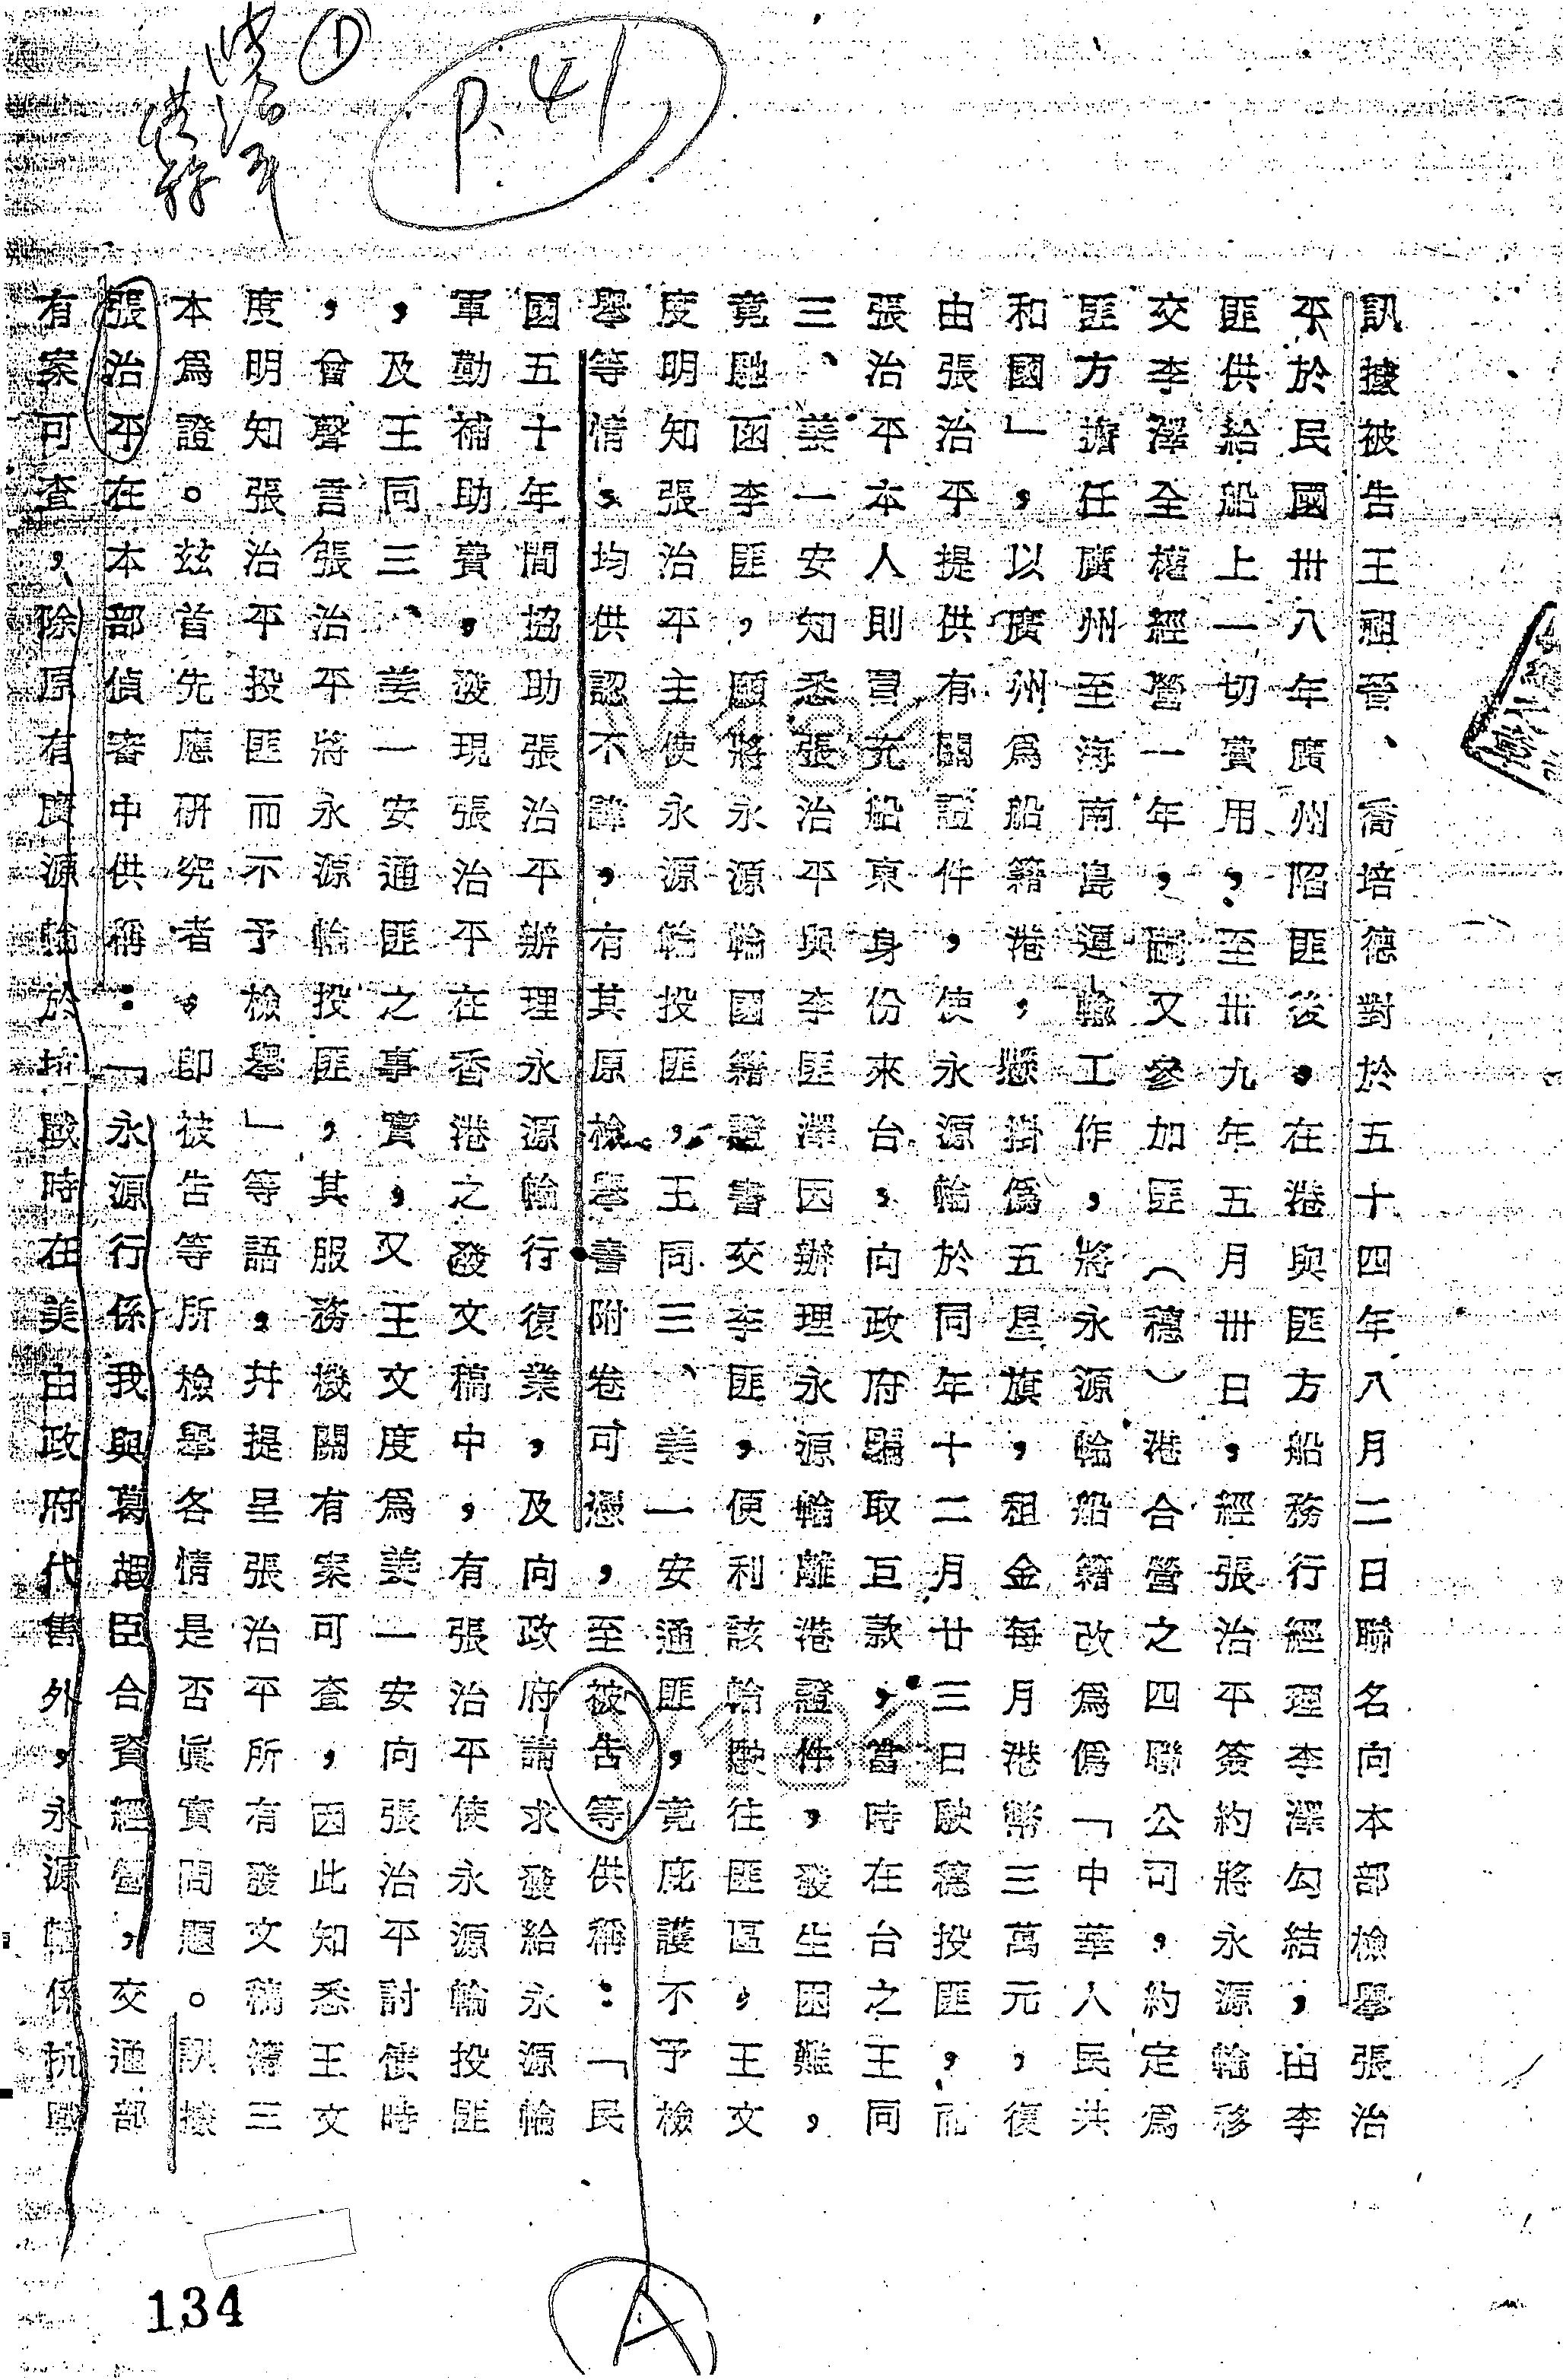 ①
P.41
訊據被告王祖晉、喬培德對於五十四年八月二日聯名向本部檢舉張治
平於民國卅八年廣州陷匪後,在港與匪方船務行經理李澤勾結,由李
匪供給船上一切費用,至卅九年五月卅日,經張治平簽約將永源輪移
交李澤全權經營一年,嗣又參加匪(穗)港合營之四聯公司,約定為
匪方擔任廣州至海南島運輸工作,將永源輪船籍改為偽「中華人民共
和國」,以廣州為船籍港,懸掛偽五星旗,租金每月港幣三萬元,復
由張治平提供有關證件,使永源輪於同年十二月廿三日駛穗投匪,而
張治平本人則冒充船東身份來台,向政府騙取巨款,當時在台之王同
三、姜一安知悉張治平與李匪澤因辦理永源輪離港證件,發生困難,
竟馳函李匪,願將永源輪國籍證書交李匪,便利該輪駛往匪區,王文
度明知張治平主使永源輪投匪,王同三、姜一安通匪,竟庇護不予檢
舉等情,均供認不諱,有其原檢舉書附卷可憑,至被告等供稱:「民
國五十年間協助張治平辦理永源輪行復業,及向政府請求發給永源輪
軍勤補助費,發現張治平在香港之發文稿中,有張治平使永源輪投匪
,及王同三、姜一安通匪之事實,又王文度為姜一安向張治平討債時
,曾聲言張治平將永源輪投匪,其服務機關有案可查,因此知悉王文
度明知張治平投匪而不予檢舉」等語,并提呈張治平所有發文稿簿三
本為證。茲首先應研究者,即被告等所檢舉各情是否眞實問題。訊據
張治平在本部偵審中供稱:「永源行係我與葛臣合資經營,交通部
有案可查,除原有廣源輪於抗戰時在美由政府代售外,永源輪係抗戰
V134
V134
A
134